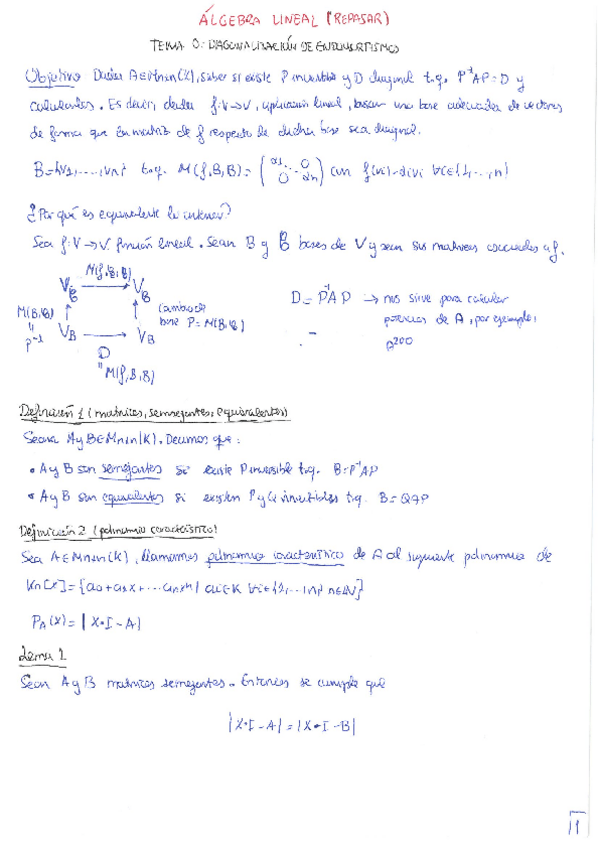 ÁLGEBRA LINEAL (REPASAR)
TEMA 0: DIAGONALIZACIÓN DE ENDOMORFISMOS
Objetivo Dada A∈Mnxn(K), saber si existe P invertible y D diagonal t.q. P⁻¹AP=D y
calcularlas. Es decir, dada f:V→V, aplicación lineal, buscar una base adecuada de vectores
de forma que la matriz de f respecto de dicha base sea diagonal.
B={v1,...,vn} t.q. M(f,B,B)= (α1 ... 0 0 αn) con f(vi)=αivi ∀i∈{1,...,n}
¿Por qué es equivalente lo anterior?
Sea f:V→V función lineal. Sean B y B̃ bases de V y sean sus matrices asociadas a f.
M(f,B̃,B̃)
V_B̃ → V_B̃
M(B,B̃) = P⁻¹
cambio de base P=M(B,B̃)
V_B → V_B
D = M(f,B,B)
D=P⁻¹AP → nos sirve para calcular
potencias de A, por ejemplo:
A²⁰⁰
Definición 1 (matrices semejantes, equivalentes)
Sean A y B∈Mnxn(K). Decimos que:
• A y B son semejantes si existe P inversible t.q. B=P⁻¹AP
• A y B son equivalentes si existen P y Q invertibles t.q. B=QAP
Definición 2 (polinomio característico)
Sea A∈Mnxn(K), llamamos polinomio característico de A al siguiente polinomio de
Kn[x]={a0+a1x+...anxⁿ| ai∈K ∀i∈{1,...n} n∈N}
P_A(x)=|x·I-A|
Lema 1
Sean A y B matrices semejantes. Entonces se cumple que
|x·I-A|=|x·I-B|
1